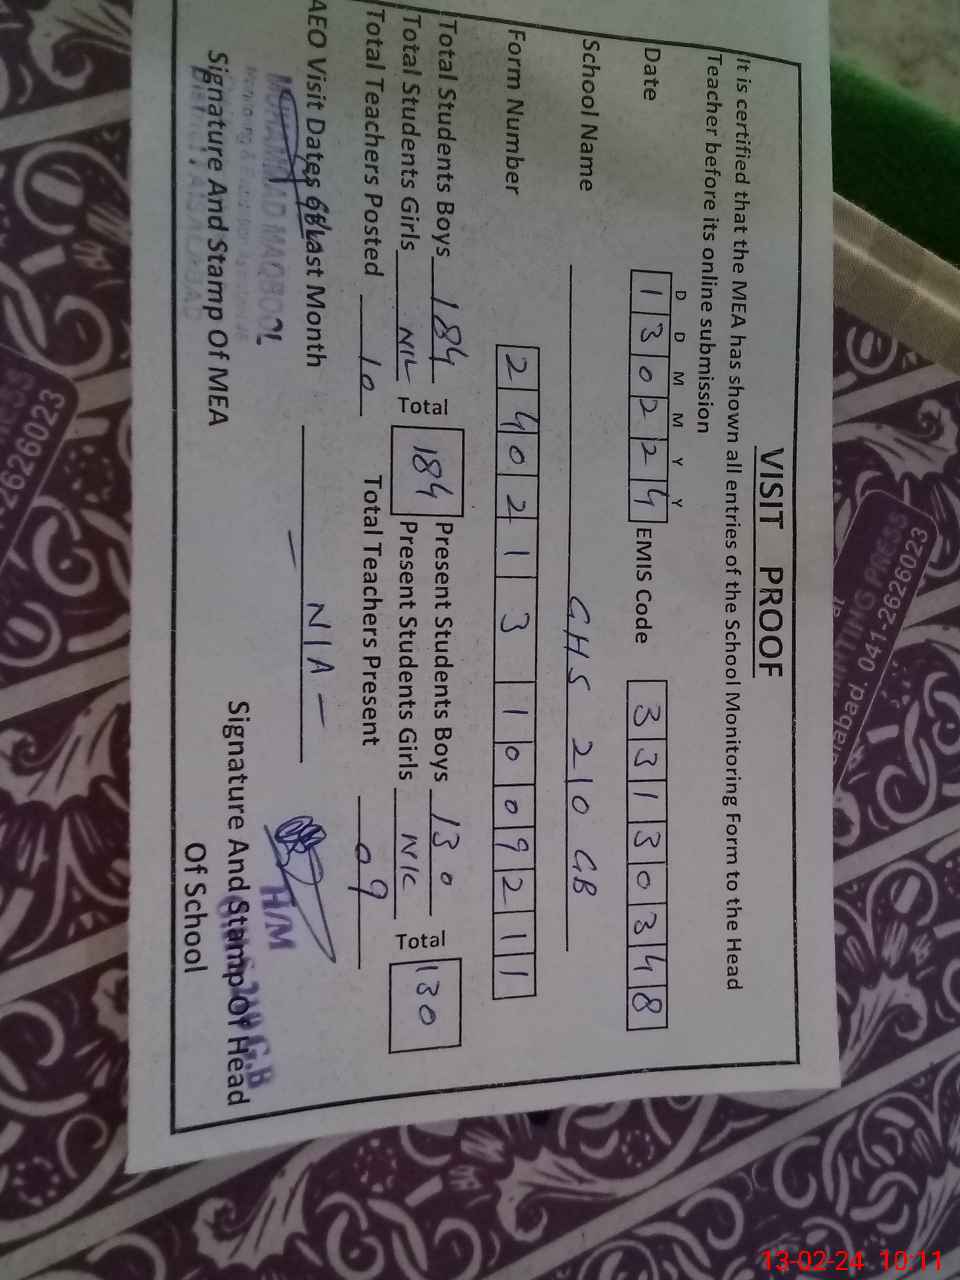 VISIT PROOF
It is certified that the MEA has shown all entries of the School Monitoring Form to the Head
Teacher before its online submission
D D M M Y Y
Date 1 3 0 2 2 4 EMIS Code 3 3 1 3 0 3 4 8
School Name GHS 210 GB
Form Number 2 4 0 2 1 3 1 0 0 9 2 1 1
Total Students Boys 184 Present Students Boys 130
Total Students Girls NIL Total 184 Present Students Girls NIL Total 130
Total Teachers Posted 10 Total Teachers Present 09
AEO Visit Dates of Last Month - N/A -
MUHAMMAD MAQBOOL
H/M
Signature And Stamp Of MEA
Signature And Stamp Of Head
Of School
G.B
PRINTING PRESS
041-2626023
2626023
13-02-24 10:11